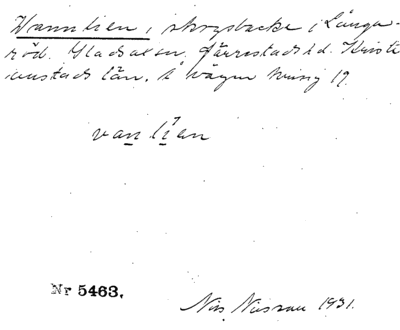 Wannlien, skogsbacke i Långa-
röd. Gladsaxsn. Järrestads hd. Kristi-
anstads län. å vägen kring 19.
van lien
Nr 5463.
Nils Nilsson 1931.